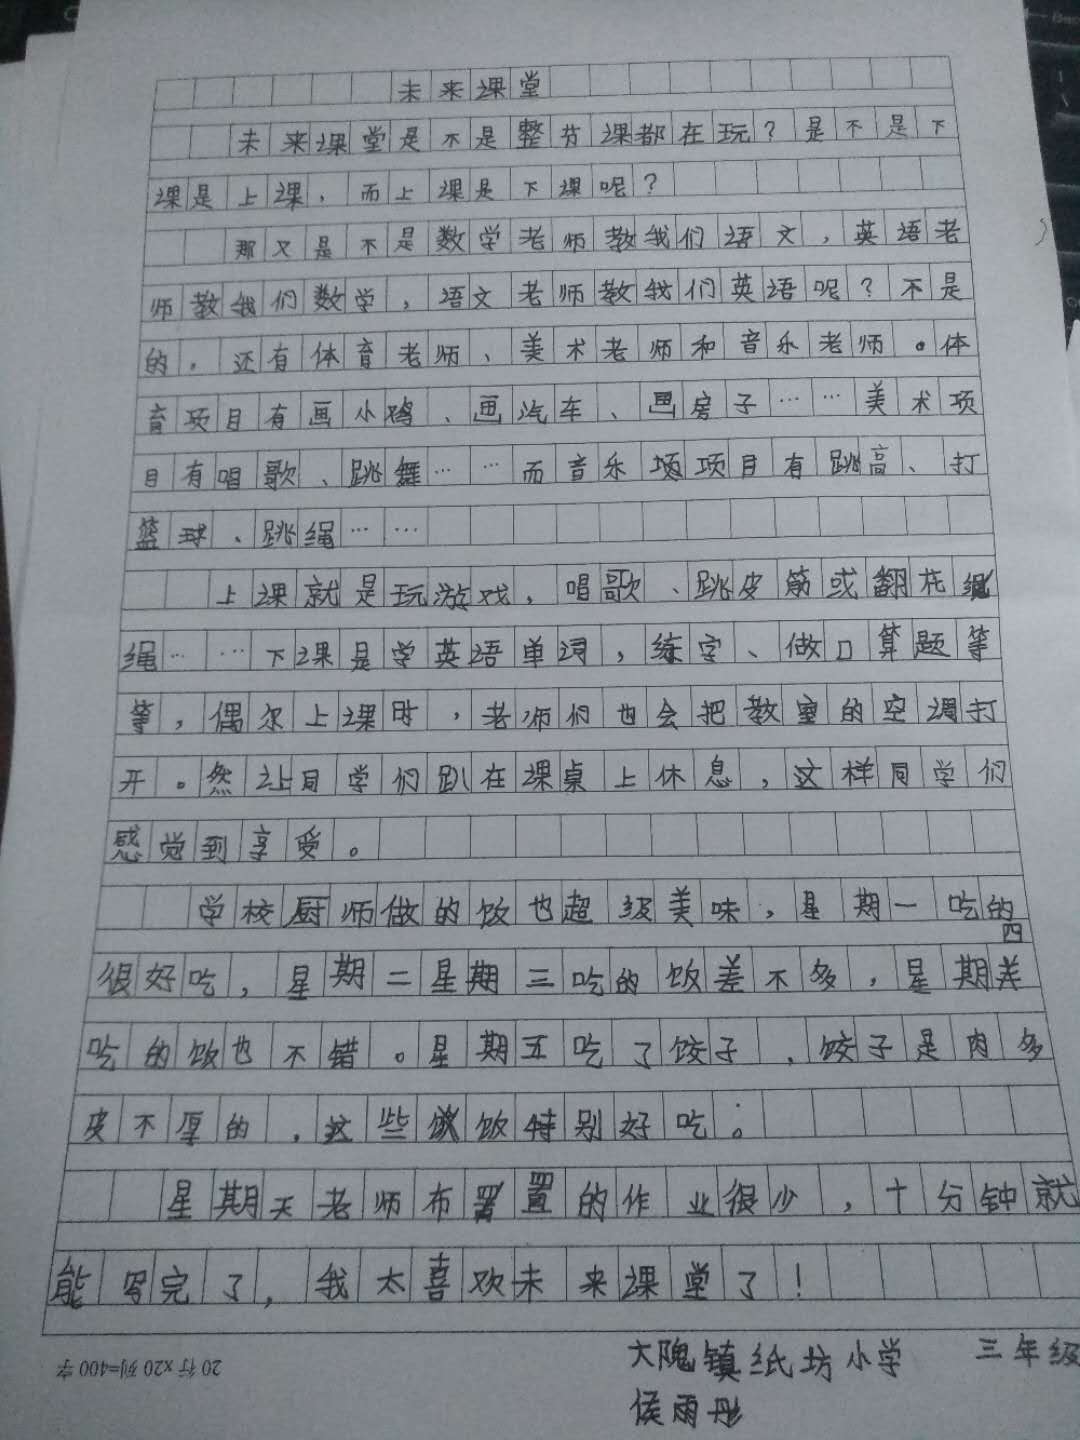 未来课堂
未来课堂是不是整节课都在玩？是不是下
课是上课，而上课是下课呢？
那又是不是数学老师教我们语文，英语老
师教我们数学，语文老师教我们英语呢？不是
的，还有体育老师、美术老师和音乐老师。体
育项目有画小鸡、画汽车、画房子……美术项
目有唱歌、跳舞……而音乐项目有跳高、打
篮球、跳绳……
上课就是玩游戏，唱歌、跳皮筋或翻花
绳……下课是学英语单词，练字、做口算题等
等，偶尔上课时，老师们也会把教室的空调打
开。然让同学们趴在课桌上休息，这样同学们
感觉到享受。
学校厨师做的饭也超级美味，星期一吃的
很好吃，星期二星期三吃的饭差不多，星期四
吃的饭也不错。星期五吃了饺子，饺子是肉多
皮不厚的，这些饭特别好吃。
星期天老师布置的作业很少，十分钟就
能写完了，我太喜欢未来课堂了！
20行x20列=400字
大隗镇纸坊小学 三年级
侯雨彤